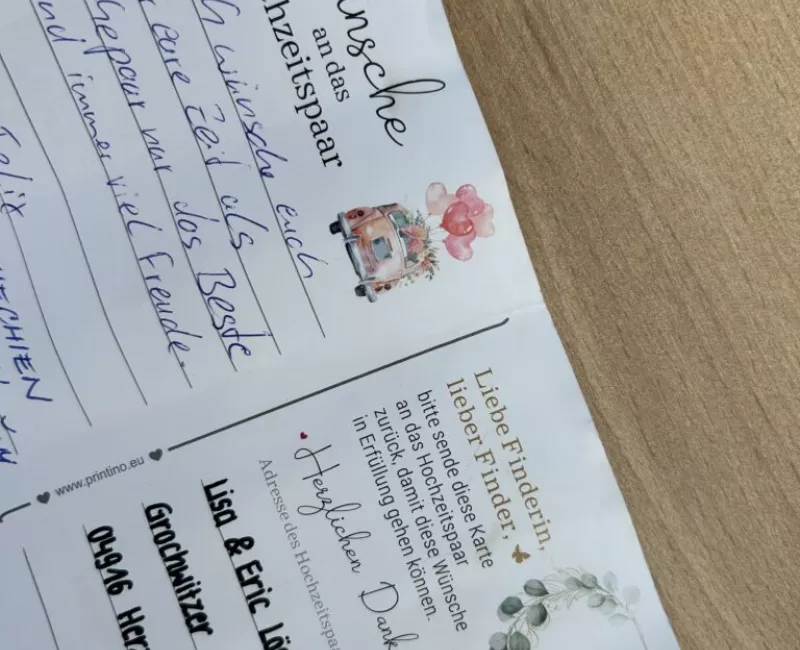 nsche
an das
hzeitspaar
wünsche euch
eure Zeit als
Ehepaar nur das Beste
nd immer viel Freude.
Felix
www.printino.eu
Liebe Finderin,
lieber Finder,
bitte sende diese Karte
an das Hochzeitspaar
zurück, damit diese Wünsche
in Erfüllung gehen können.
Herzlichen Dank
Adresse des Hochzeitspaa
Lisa & Eric Lö
Grochwitzer
04916 Her